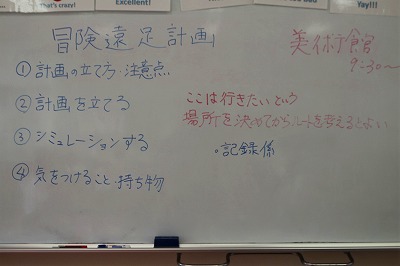 What's crazy!
Excellent!
Yay!!!
冒険遠足計画
美術館
9:30〜
①計画の立て方・注意点
②計画を立てる
ここは行きたいという
場所を決めてからルートを考えるとよい
③シミュレーションする
。記録係
④気をつけること・持ち物